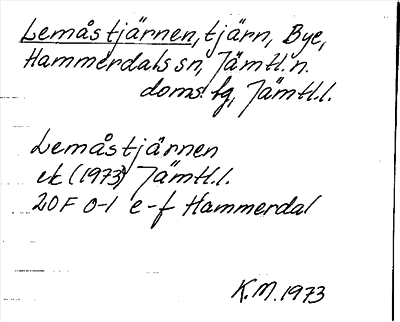 Lemåstjärnen, tjärn, Bye,
Hammerdals sn, Jämtl. n.
doms. fg, Jämtl. l.
Lemåstjärnen
ek (1973) Jämtl. l.
20F 0-1 e-f Hammerdal
K.M. 1973